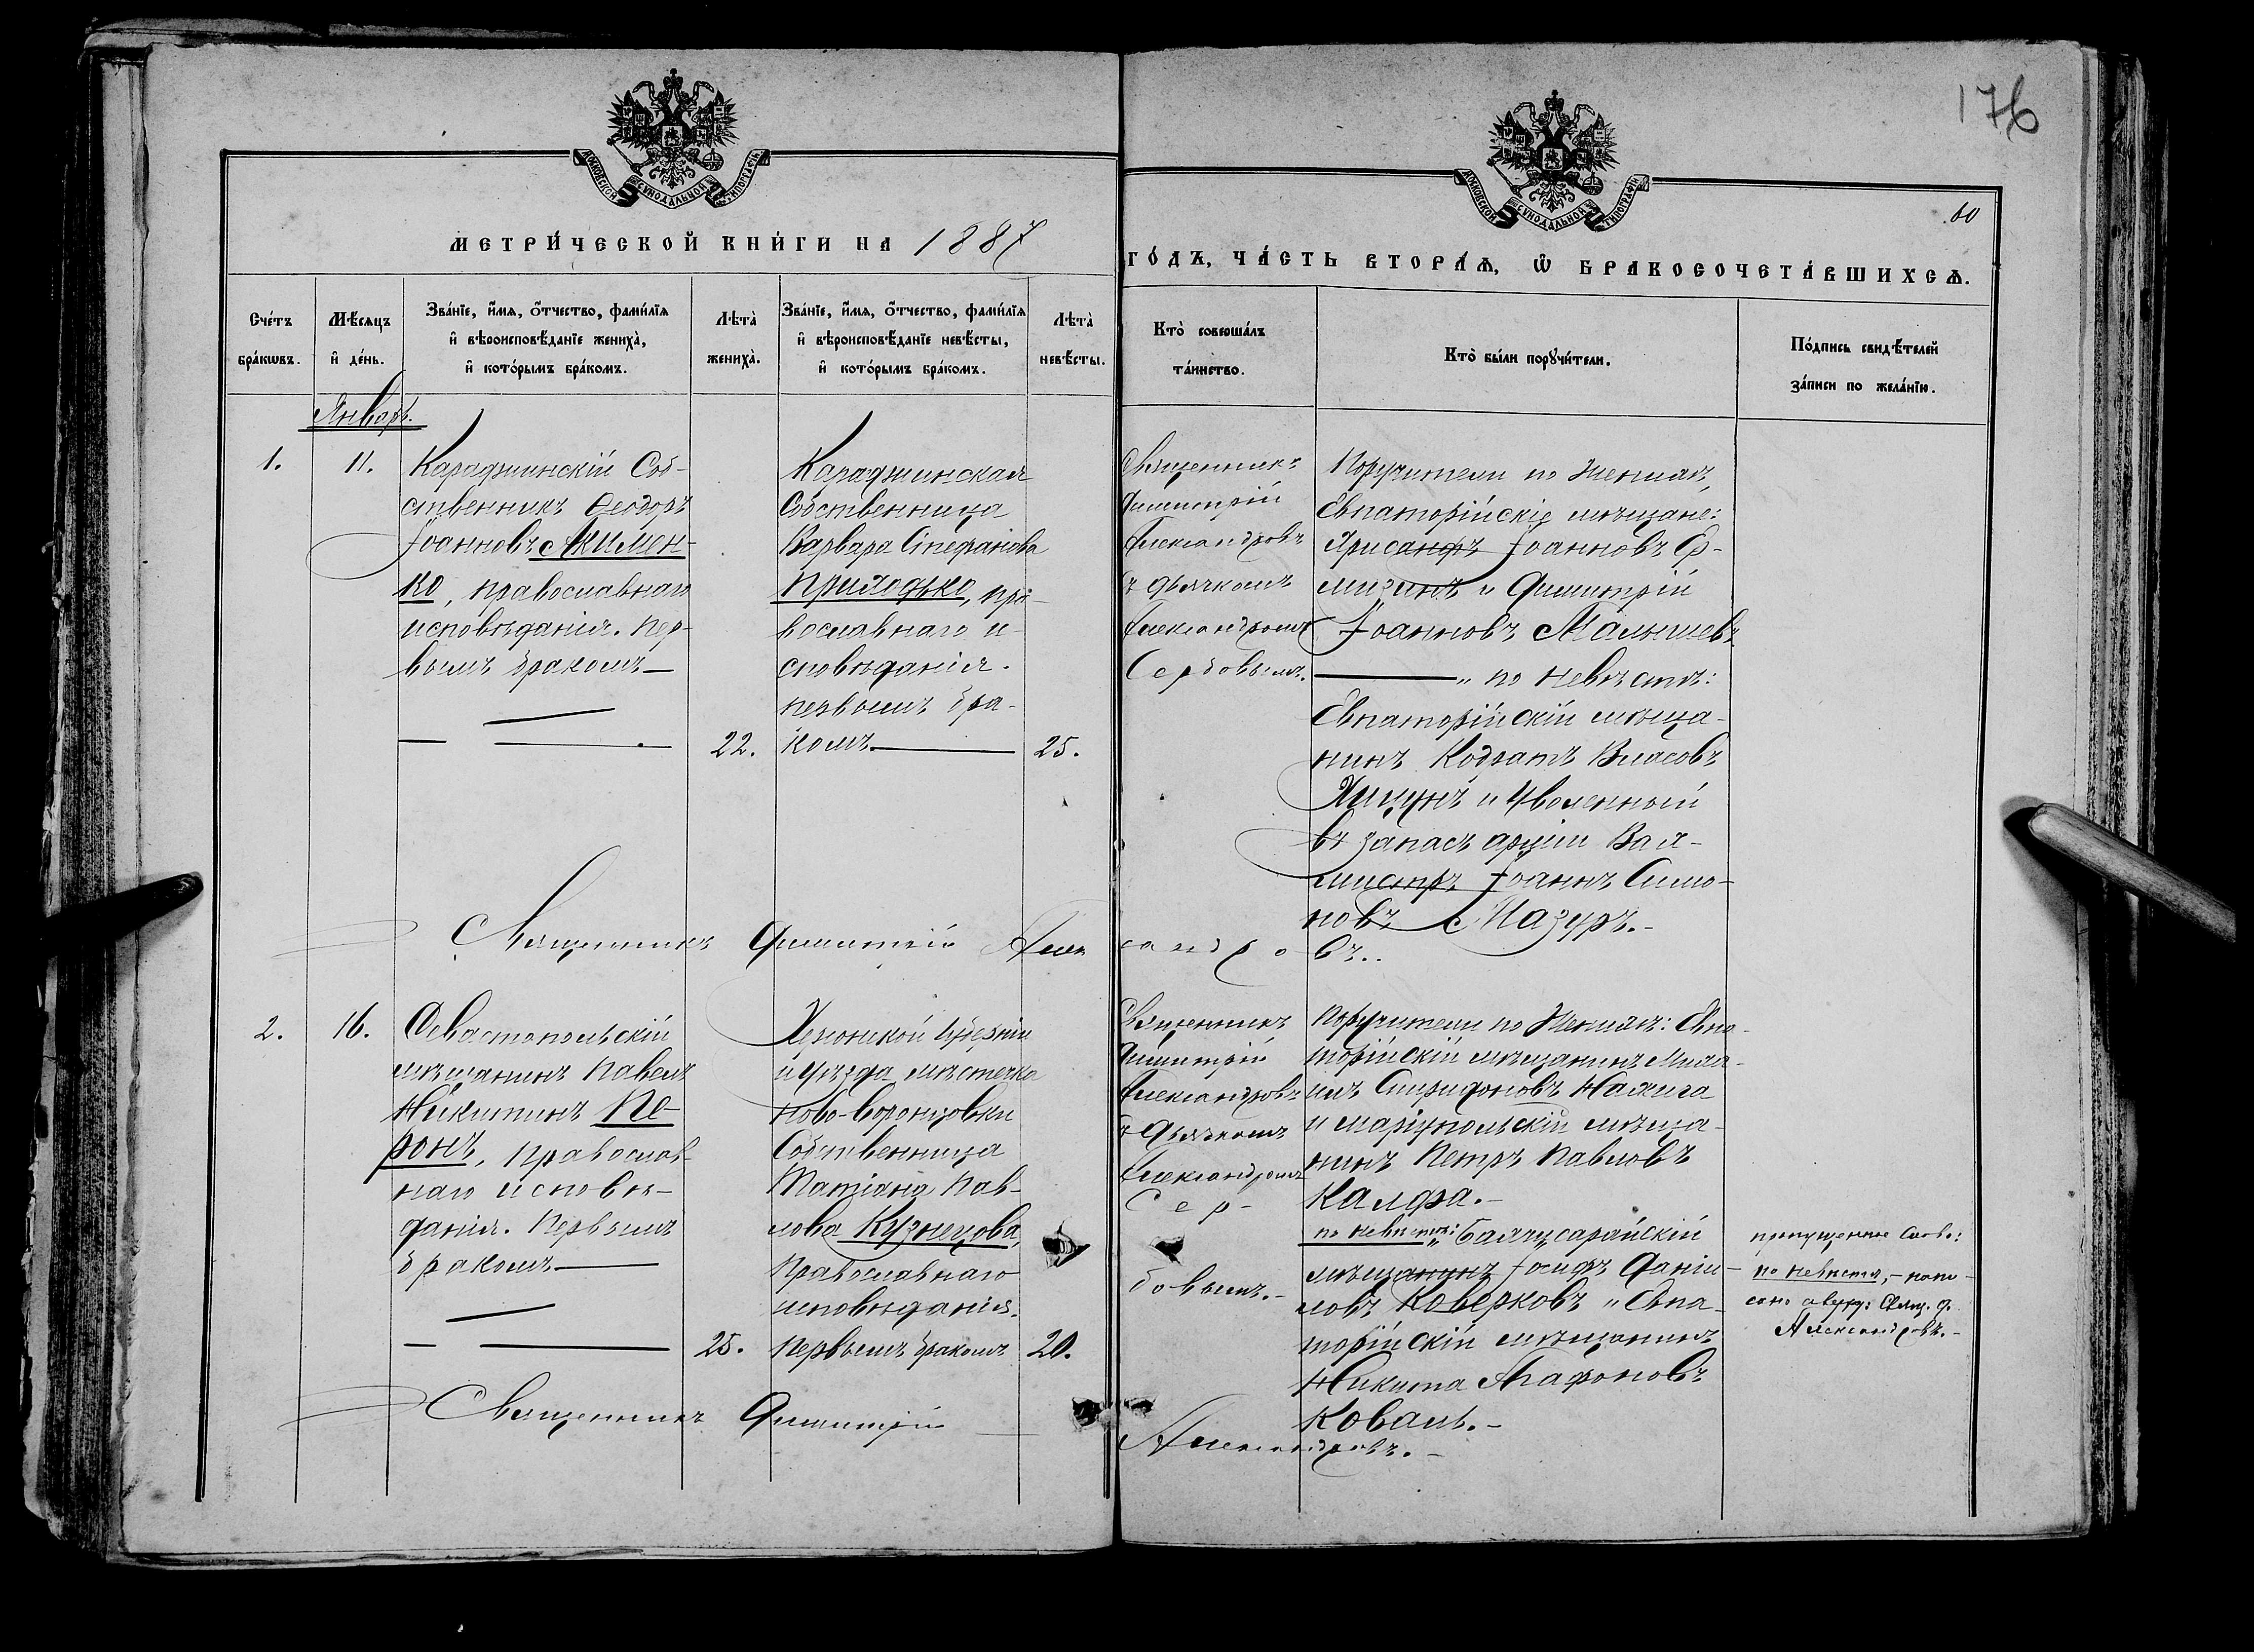 176
60
МОСКОВСКОЙ СУНОДАЛЬНОЙ ТИПОГРАФІИ
МОСКОВСКОЙ СУНОДАЛЬНОЙ ТИПОГРАФІИ
МЕТРИ́ЧЕСКОЙ КНИ́ГИ НА 1887
ГО́ДЪ, ЧА́СТЬ ВТОРА́Ѧ, Ѽ БРАКОСОЧЕТА́ВШИХСѦ.
Сче́тъ
бра́кѡвъ.
Мѣ́сяцъ
и҆ де́нь.
Зва́нїе, и҆́мѧ, ѻ҆́тчество, фами́лїѧ
и҆ вѣроисповѣ́данїе жениха̀,
и҆ кото́рымъ бра́комъ.
Лѣта̀
жениха̀.
Зва́нїе, и҆́мѧ, ѻ҆́тчество, фами́лїѧ
и҆ вѣроисповѣ́данїе невѣ́сты,
и҆ кото́рымъ бра́комъ.
Лѣта̀
невѣ́сты.
Кто̀ соверша́лъ
та́инство.
Кто̀ бы́ли порꙋчи́тели.
По́дпись свидѣ́телей
за́писи по жела́нїю.
Январь.
1.
11.
Караджинскій Соб-
ственникъ Ѳеодоръ
Іоанновъ Акимен-
ко, православнаго
исповѣданія. Пер-
вымъ бракомъ
22.
Караджинская
Собственница
Варвара Стефанова
Приходько, пра-
вославнаго и-
сповѣданія.
первымъ бра-
комъ
25.
Священникъ
Димитрій
Александровъ
съ дьячкомъ
Александромъ
Сербовымъ.
Поручители по Женихѣ,
Евпаторійскіе мѣщане:
Іоанновъ
и Димитрій
Іоанновъ Малышевъ
" по невѣстѣ:
Евпаторійскій мѣща-
нинъ Кодратъ Власовъ
Хицунъ и Уволенный
въ запасъ арміи Вах-
мистръ Іоаннъ Симо-
новъ Мазуръ.-
Священникъ Димитрій Александровъ..
2.
16.
Севастопольскій
мѣщанинъ Павелъ
Никитинъ Пе-
ронъ, Православ-
наго исповѣ-
данія. Первымъ
бракомъ
25.
Херсонской Губерніи
и уѣзда мѣстечка
Ново-Воронцовки
Собственница
Татіана Пав-
лова Кузнецова,
Православнаго
исповѣданія.
Первымъ бракомъ
20.
Священникъ
Димитрій
Александровъ
съ Дьячкомъ
Александромъ
Сер-
бовымъ.-
Поручители по Женихѣ: Евпа-
торійскій мѣщанинъ Миха-
илъ Спиридоновъ
и маріупольскій мѣща-
нинъ Петръ Павловъ
Калфа.-
по невѣстѣ: " Бахчисарайскій
мѣщанинъ Іосифъ Даніи-
ловъ Коверковъ " Евпа-
торійскій мѣщанинъ
Никита Агафоновъ
Коваль.-
пропущенное слово:
по невѣстѣ, - напи-
сано сверху: Свящ. Д.
Александровъ.-
Священникъ Димитрій
Александровъ.-